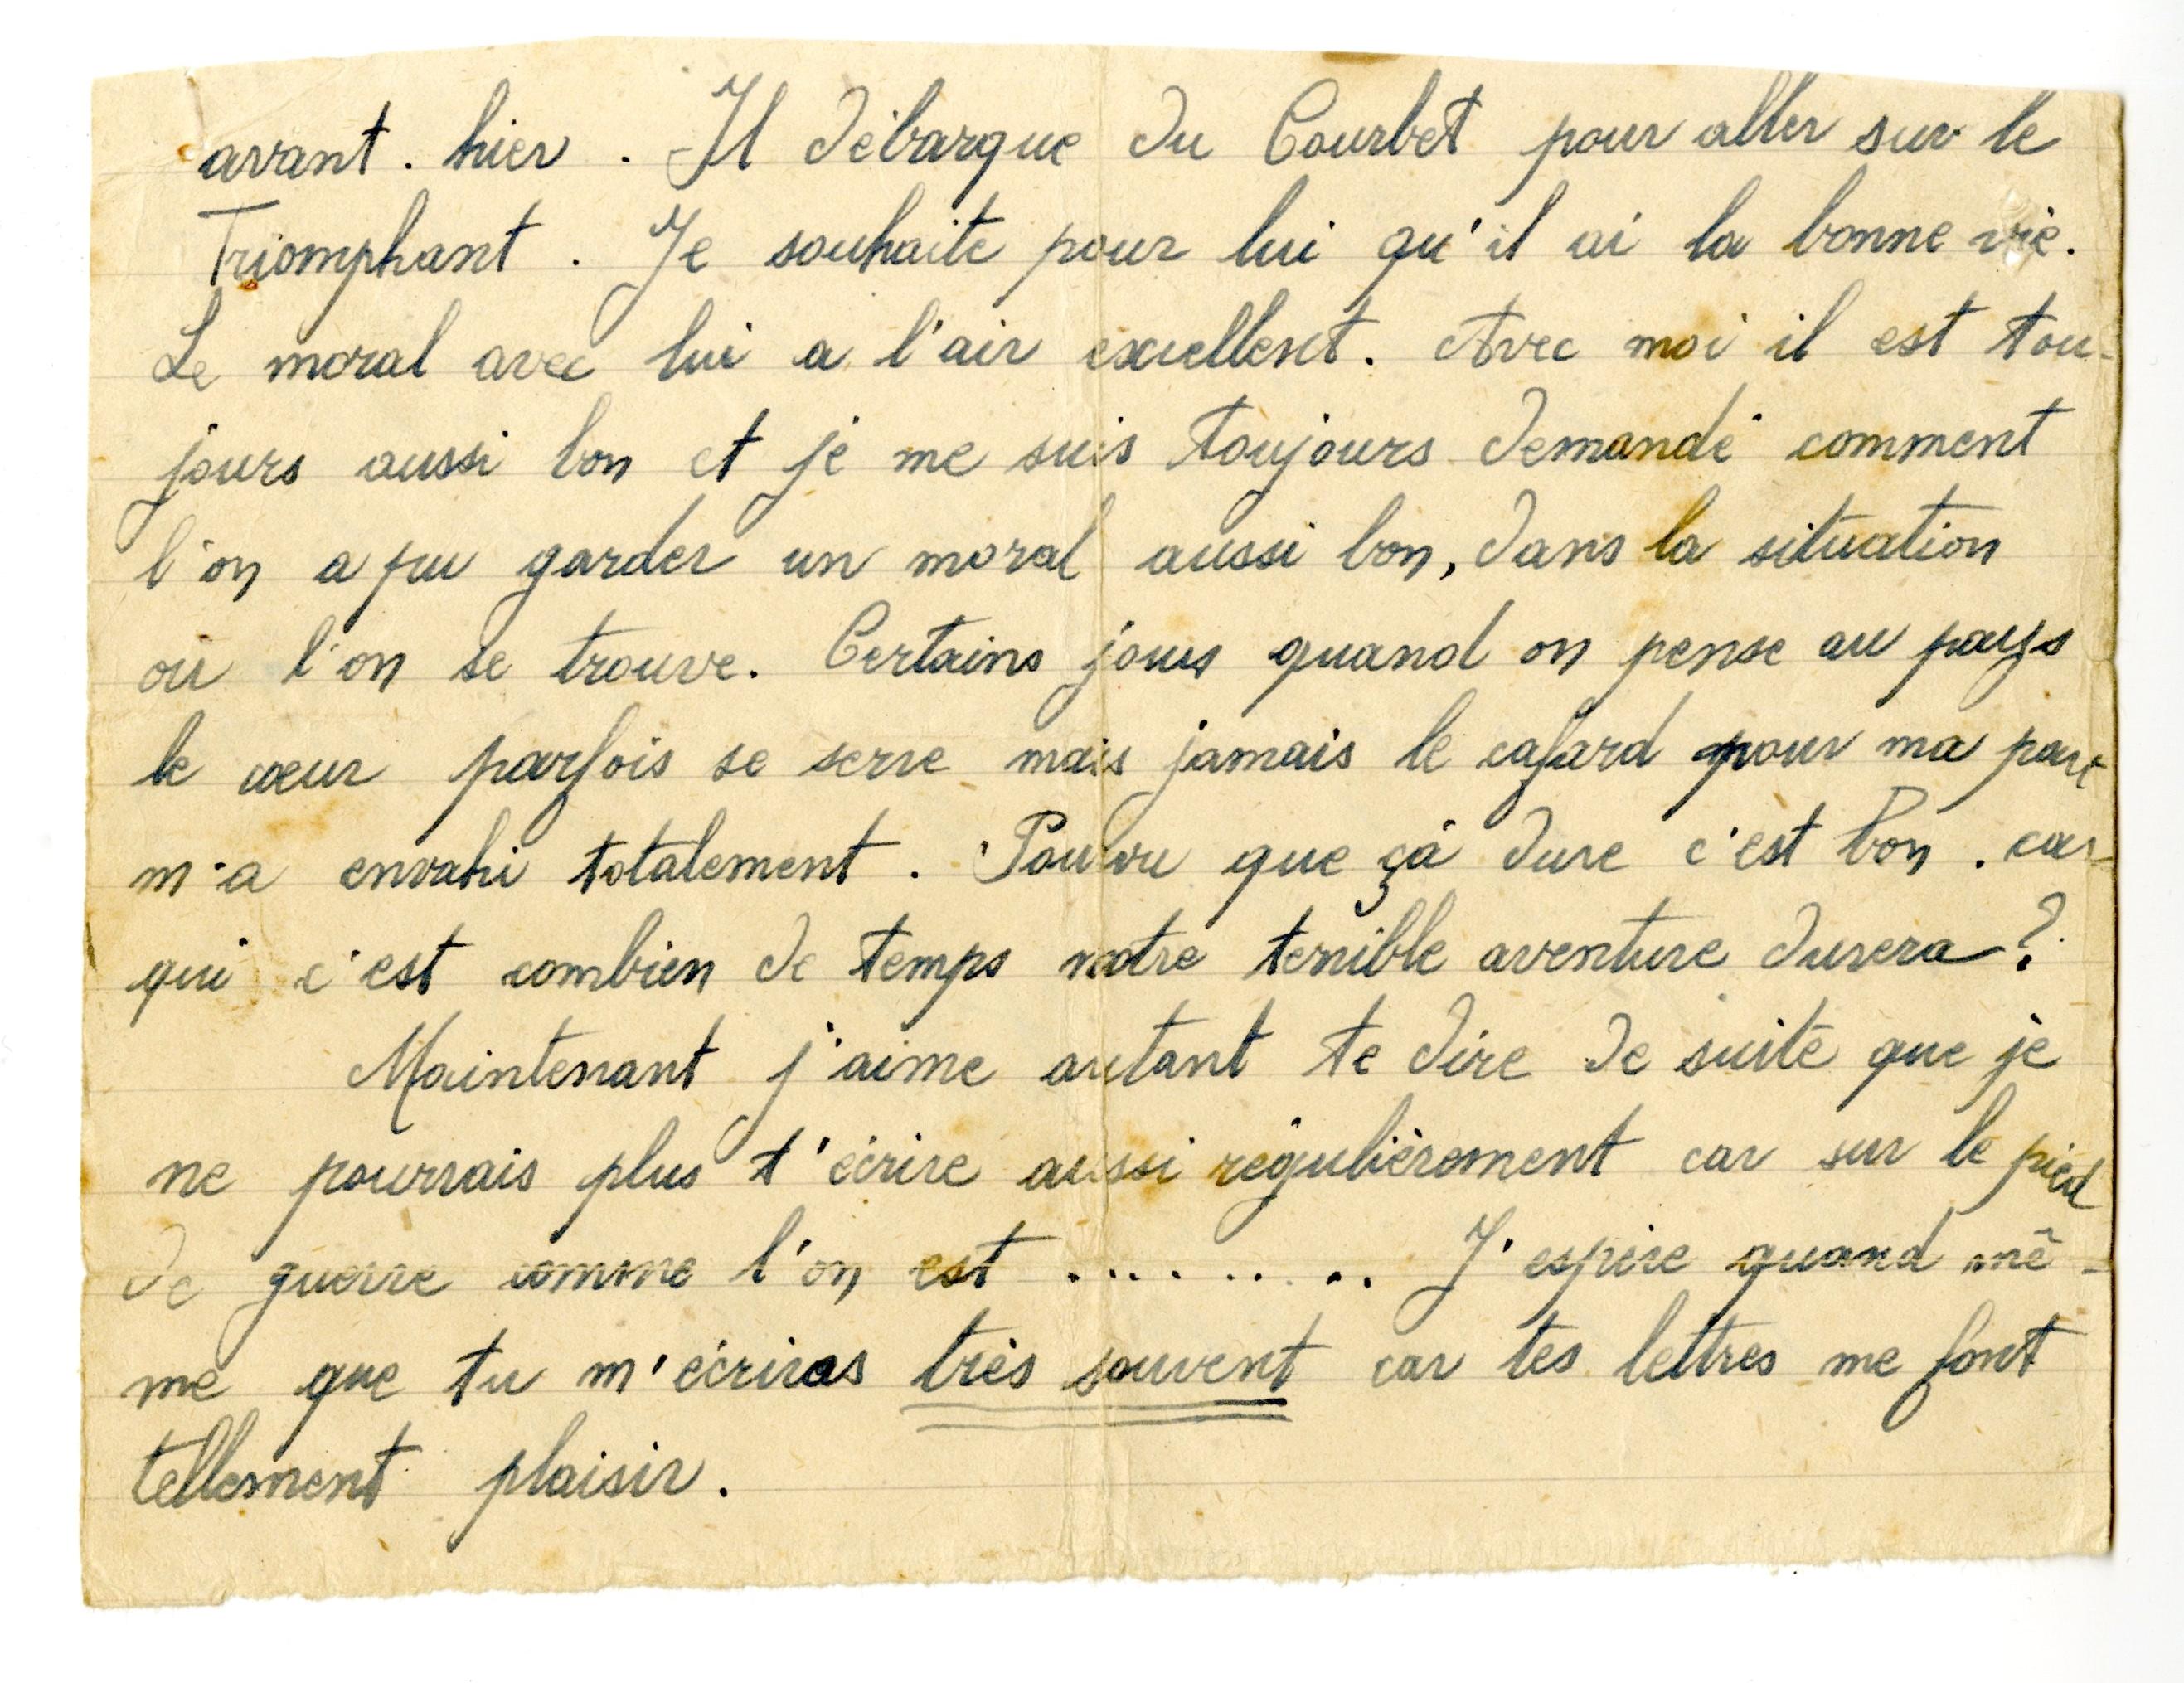 avant. hier. Il débarque du Courbet pour aller sur le
Triomphant. Je souhaite pour lui qu'il ai la bonne vie.
Le moral avec lui a l'air excellent. Avec moi il est tou-
jours aussi bon et je me suis toujours demandé comment
l'on a pu garder un moral aussi bon, dans la situation
où l'on se trouve. Certains jours quand on pense au pays
le cœur parfois se serre mais jamais le cafard pour ma part
m'a envahi totalement. Pourvu que çà dure c'est bon. car
qui c'est combien de temps notre terrible aventure durera?
Maintenant j'aime autant te dire de suite que je
ne pourrais plus t'écrire aussi régulièrement car sur le pied
de guerre comme l'on est .......... J'espère quand mê-
me que tu m'écriras très souvent car tes lettres me font
tellement plaisir.